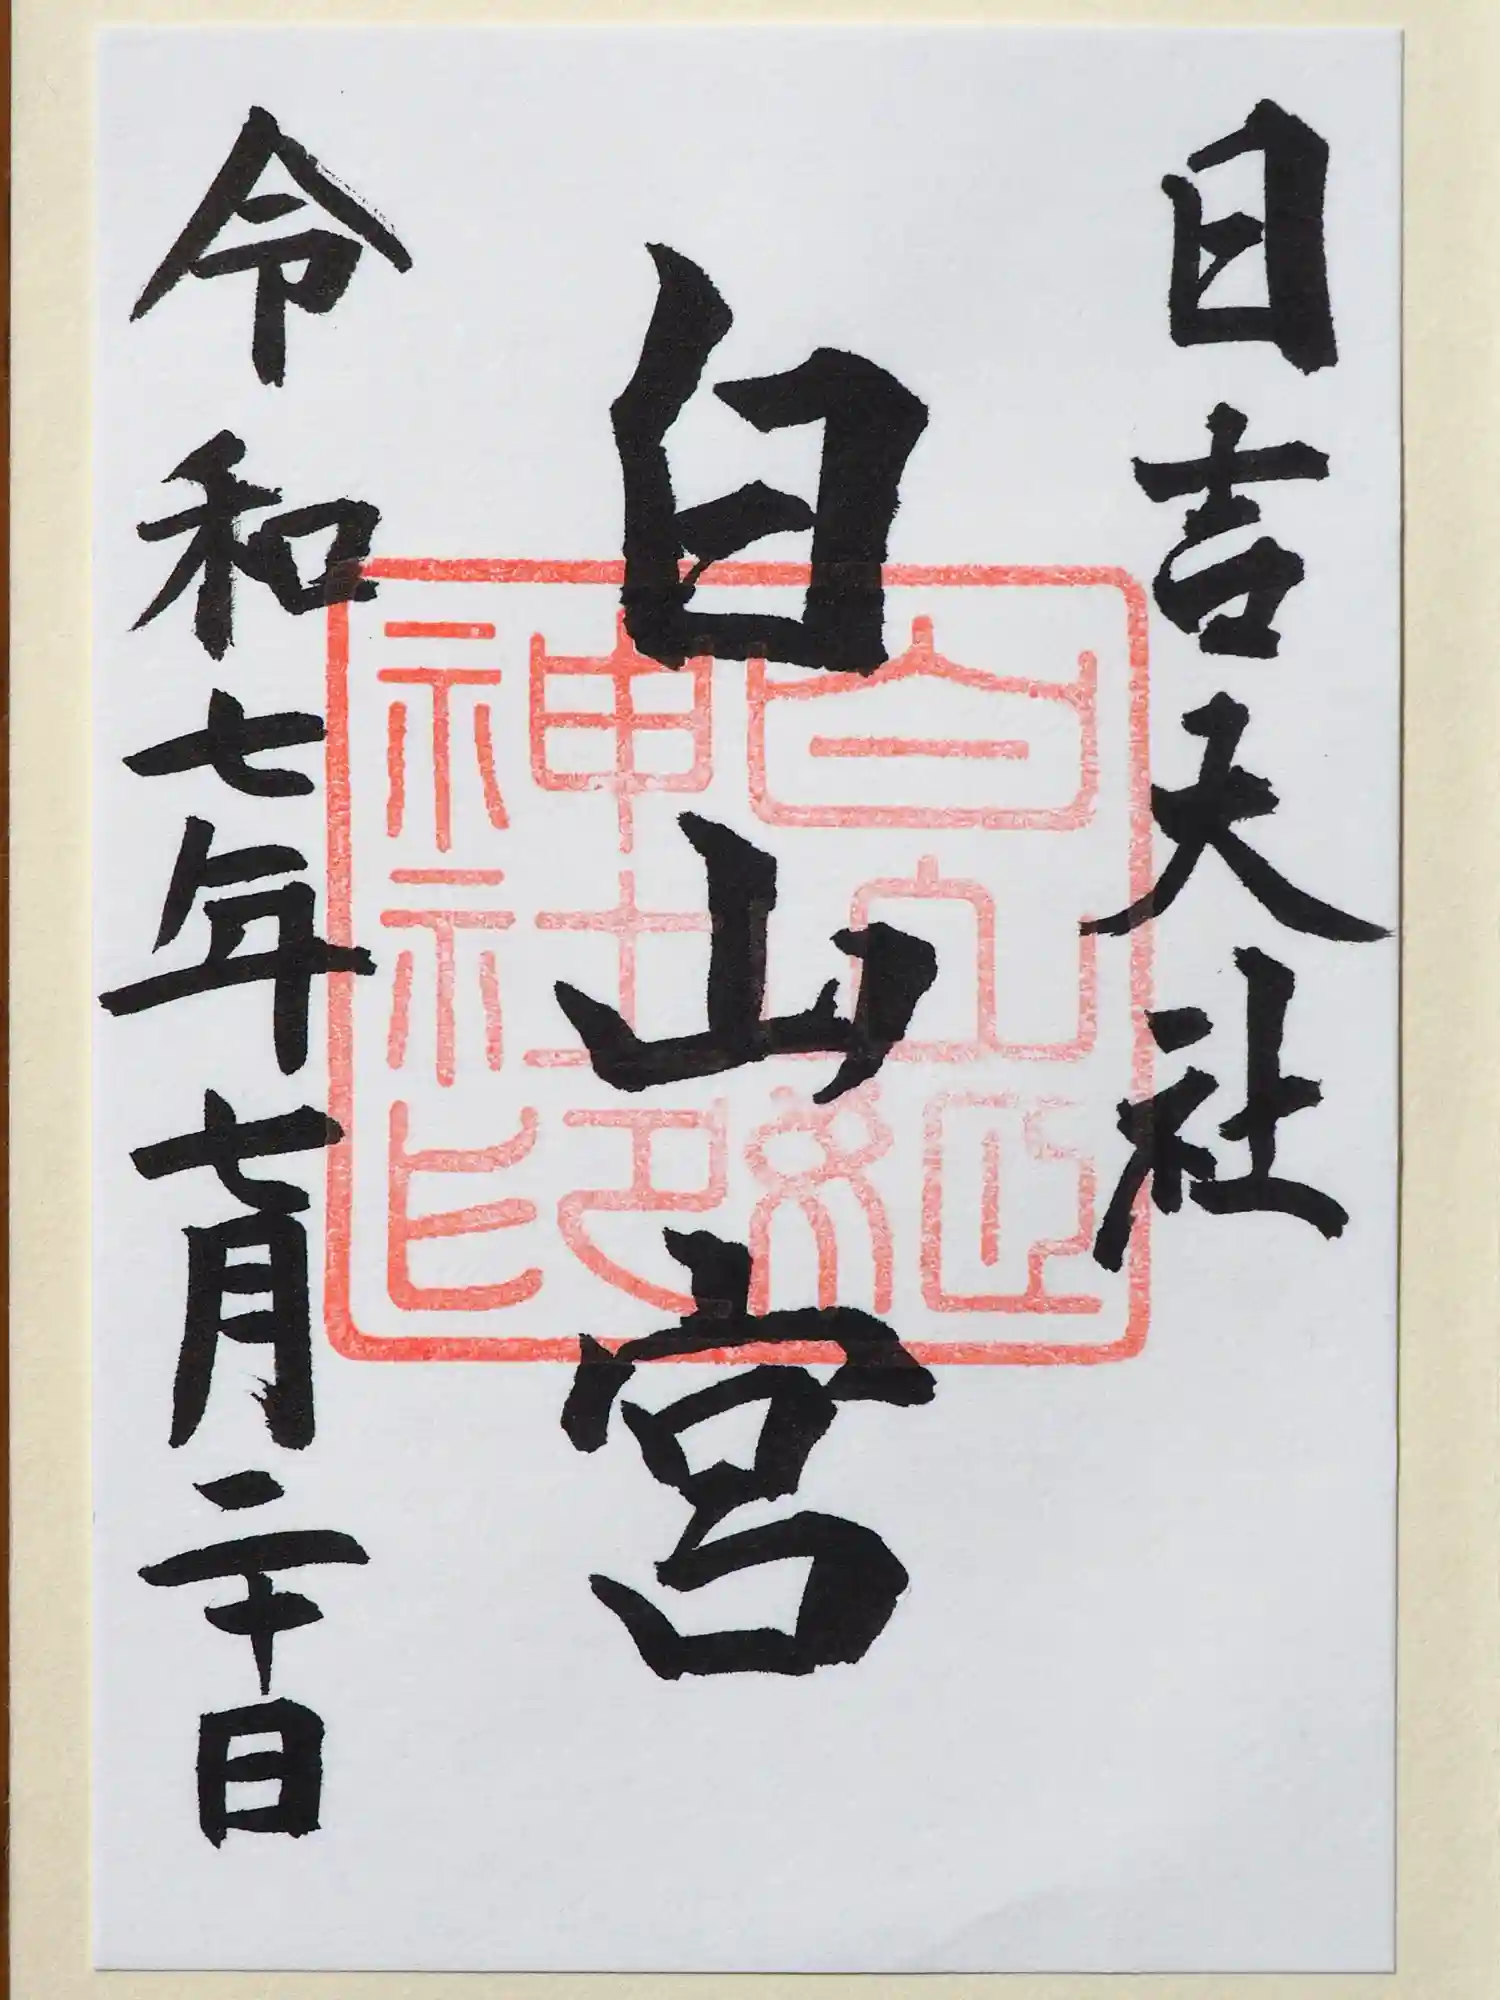 日吉大社
白山宮
白山姫
神社印
令和七年七月二十日